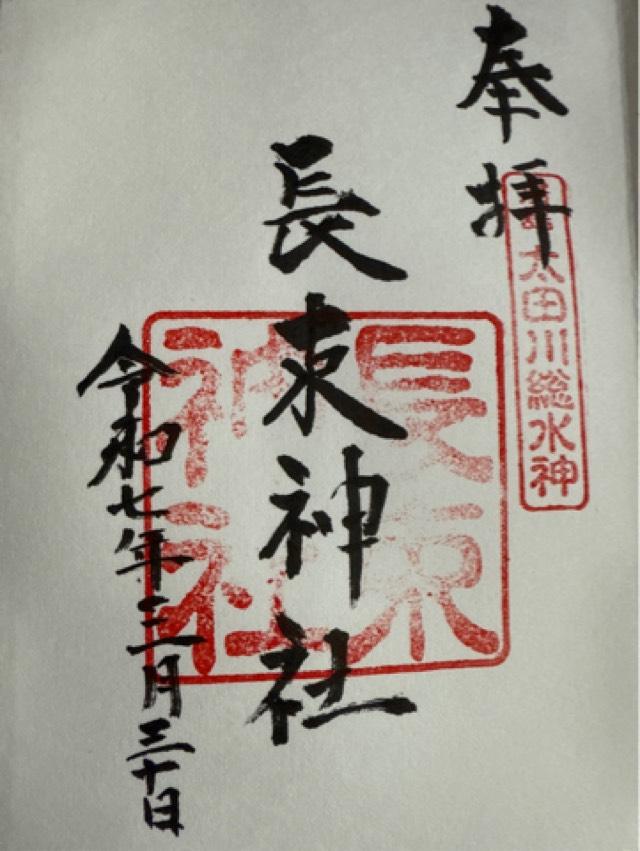 奉拝
太田川総水神
長束神社
長束神社
令和七年三月三十日